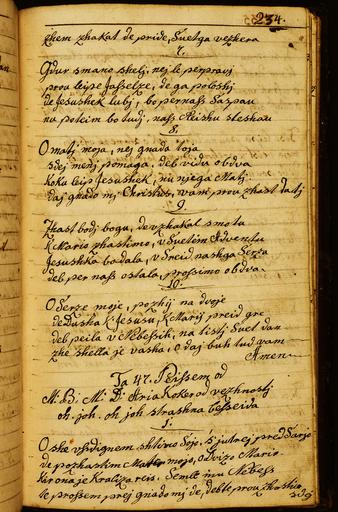 234.
zhem zhakat de pride, Svetga vezhera
7.
Gdur smano shelj, nej le perpravj
prov leip Jasselze, de ga poloshj
de Jesushek lubj, bo per nass Saspau
nu potem bo tudj, nass Reishu
8.
O matj moja, nej gnada toja
sdej menj pomaga, deb vidu obdva
koku leip Jesushek, nu njega Matj
daj gnado mj Christus, vam prou zhast datj
9.
Zhast bodj bogu, de vzhakal smo tu
k Mario zhastimo, v Svetim Adventu
Jesushka badala, v Sreid nashga Serza
deb per nass ostala, prossimo obdva.
10.
O Serze moje, pozhij na dvoje
de Dushka k Jesusu, k Marij preid gre
deb peila v Nebessih, na tistj Svet dan
zhe shella je vasha, O daj buh tud vam
Amen
Ta 47. Peissem od
M: B: M: D: Aria koker od vezhnostj
oh. joh. oh joh strashna
1.
O ske vsdignem shtimo Sojo, s jutrej pred Sarjo
de pozhaskim Matter mojo, o kvizo Mario
kir ona je Kraliza reis. Semle inu Nebess
te prossem prej gnado mj de, debte prou zhastiu
sdej